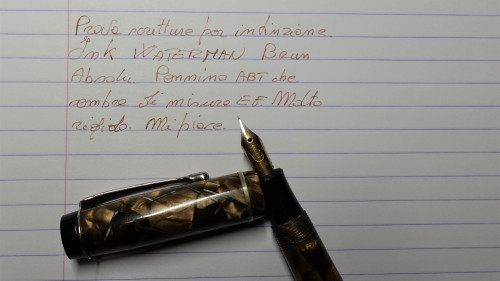 Prova scrittura per intinzione.
Ink WATERMAN Brun
Absolu. Pennino ABT che
sembra di misura E.F. Molto
rigido. Mi piace.